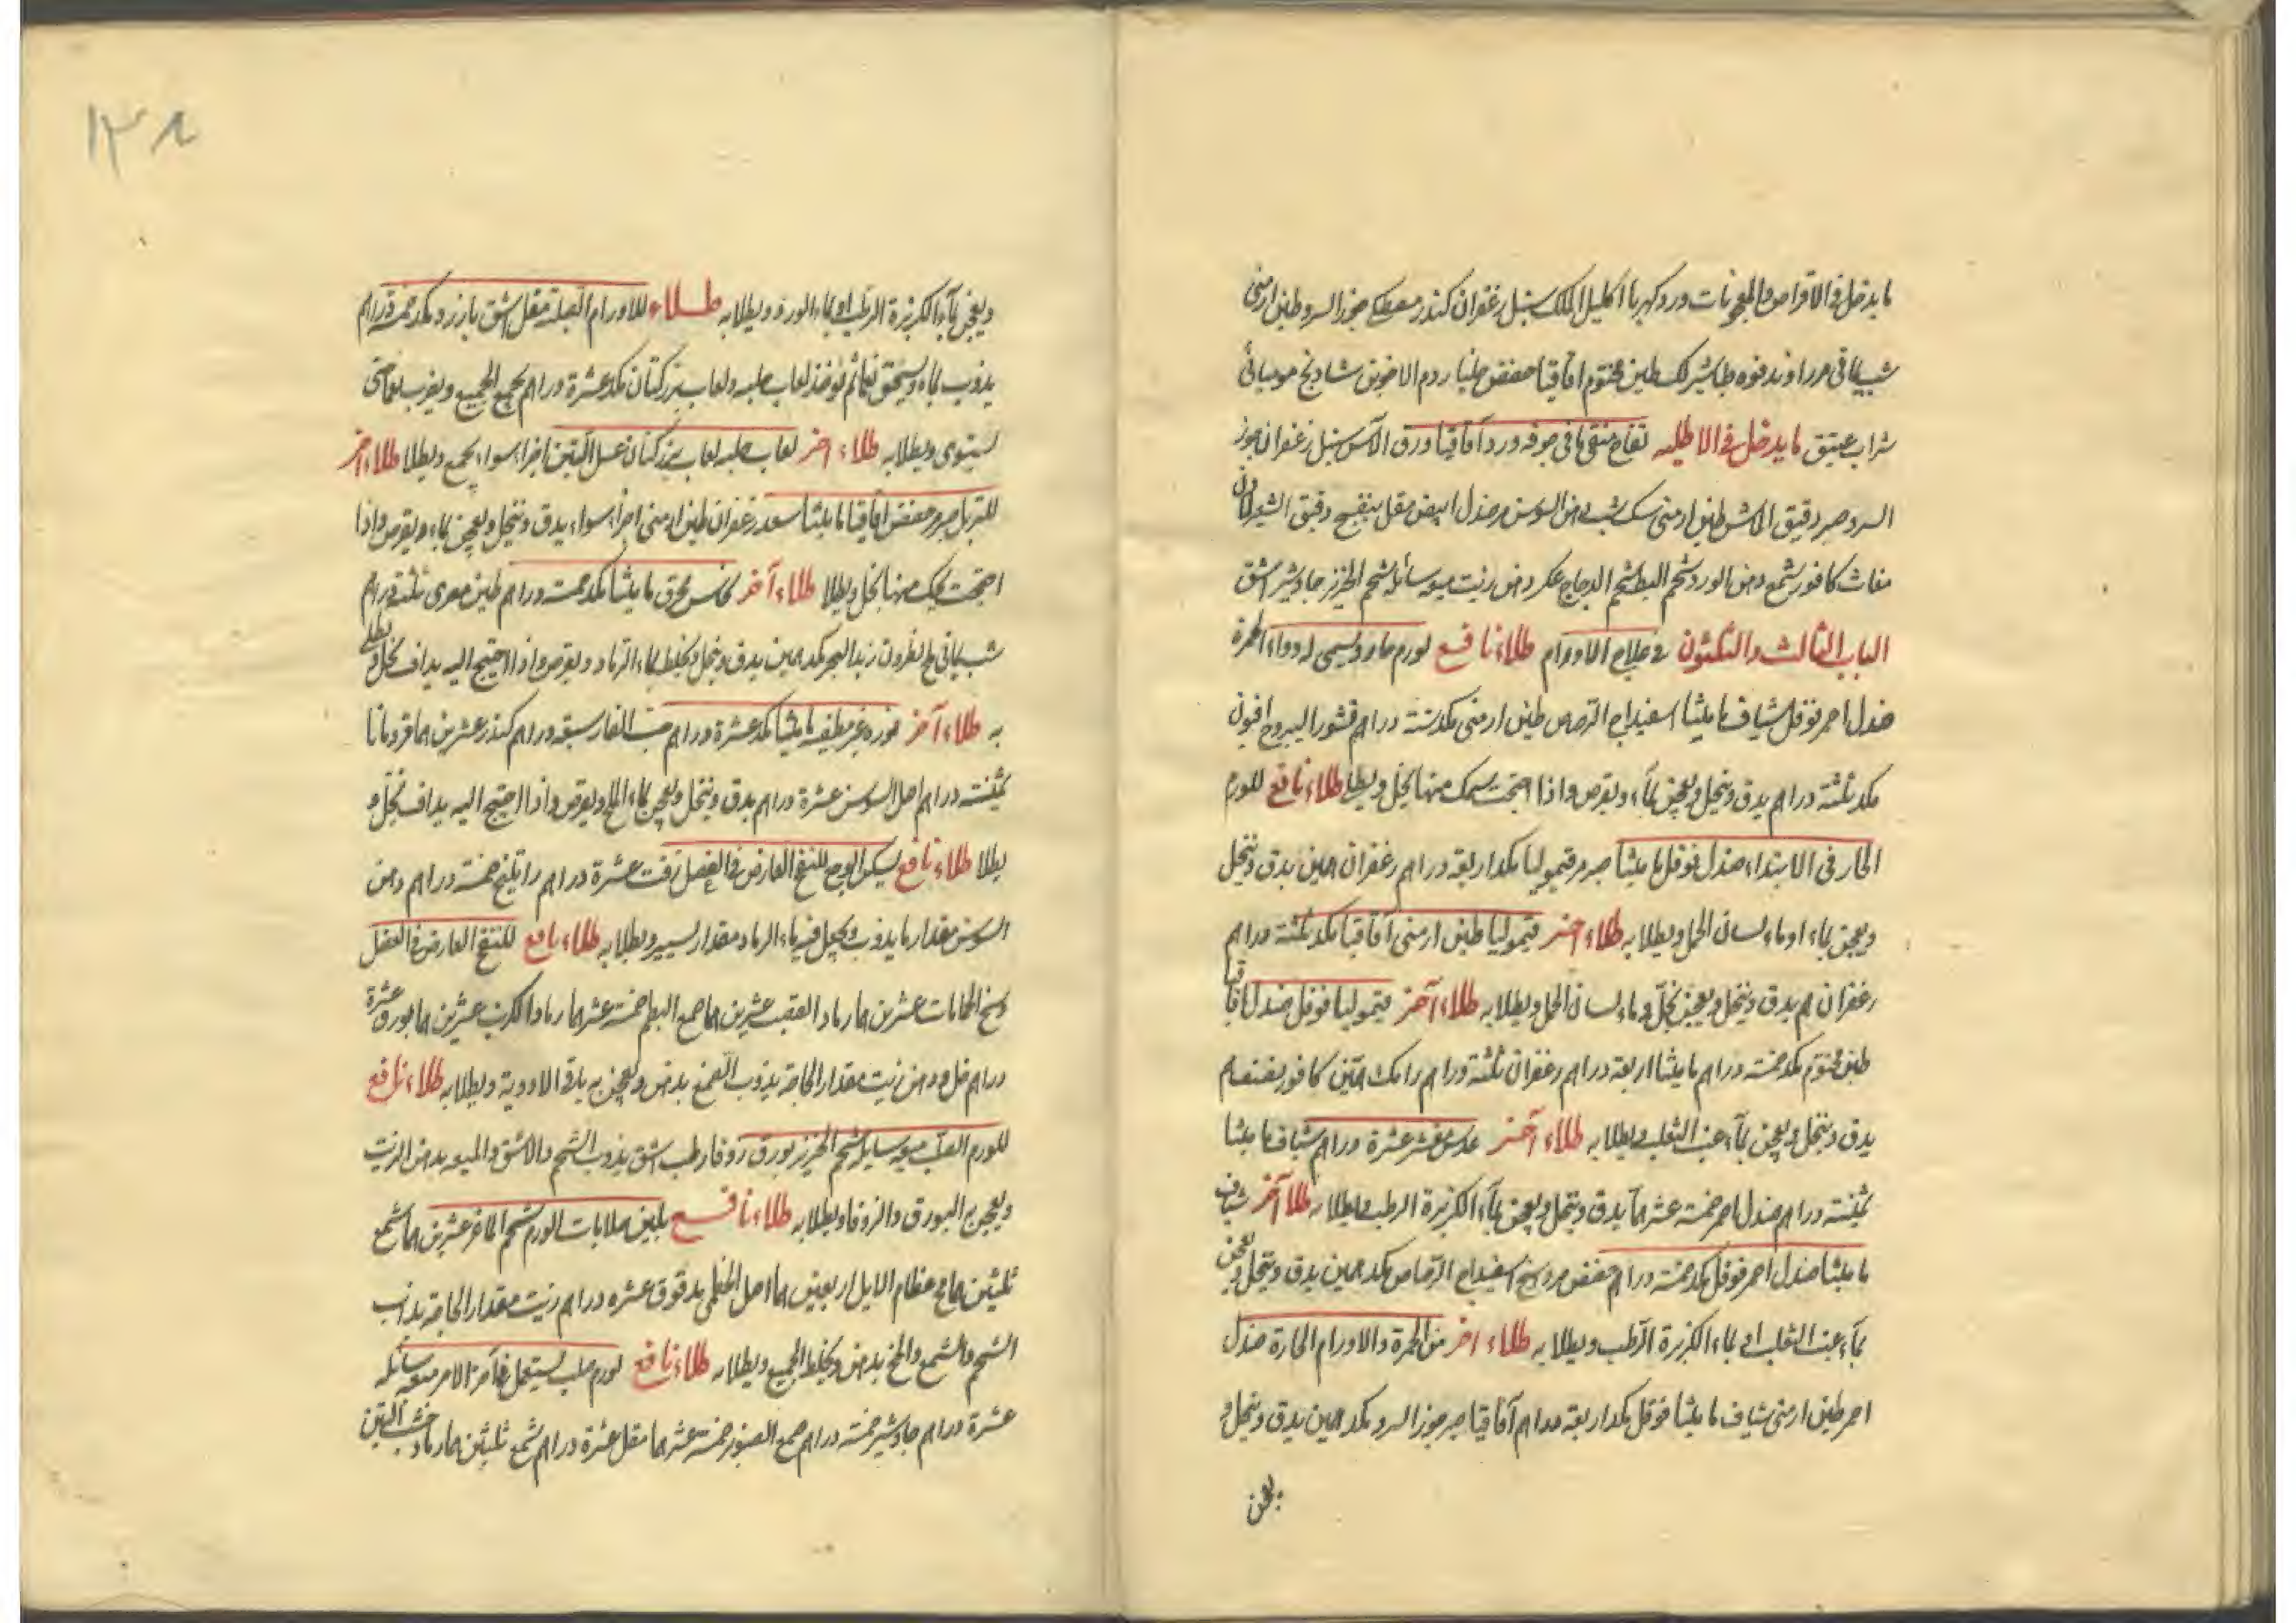 ما يدخل في الاقراص والمعجونات ورد كهربا اكليل الملك سنبل زعفران كندر مصطكى جوز السرو طين ارمنى
شب يمانى مر راوند فوه طباشير لك طين مختوم اقاقيا حضض جلنار دم الاخوين شادنج موميائى
شراب عتيق ما يدخل في الاطليه تفاح منقى ما في جوفه ورد آقاقيا ورق الآس سنبل زعفران جوز
السرو صبر دقيق الماش طين ارمنى سك شب دهن السوسن صندل ابيض مقل بنفسج دقيق الشعير لاذن
مغاث كافور شمع دهن الورد شحم البط شحم الدجاج عكر دهن زيت ميعه سائله شحم الخنزير جاوشير اشق
الباب الثالث والثلثون في علاج الاورام طلاء نافع لورم حار ويسمى له دواء الحمرة
صندل احمر فوفل شياف ماميثا اسفيداج الرصاص طين ارمنى مكد ستة دراهم قشور اليبروح افيون
مكد ثلثة دراهم يدق وينخل ويعجن بماء ويقرص واذا احتجت يحك منها بخل ويطلا طلاء نافع للورم
الحار في الابتداء صندل فوفل ماميثا صبر مر قيموليا مكد اربعة دراهم زعفران همين يدق وينخل
ويعجن بماء او ماء لسان الحمل ويطلا به طلاء اخر قيموليا طين ارمنى آقاقيا مكد ثلثة دراهم
زعفران هم يدق وينخل ويعجن بخل وماء لسان الحمل ويطلا به طلاء آخر قيموليا فوفل صندل اقاقيا
طين مختوم مكد خمسة دراهم ماميثا اربعة دراهم زعفران ثلثة دراهم رامك همين كافور نصف هم
يدق وينخل ويعجن بماء عنب الثعلب ويطلا به طلاء آخر عدس مقشر عشرة دراهم شياف ماميثا
ثمنية دراهم صندل احمر خمسة عشر هما يدق وينخل ويعجن بماء الكزبرة الرطبه ويطلا به طلا آخر شياف
ماميثا صندل احمر فوفل مكد خمسة دراهم حضض مرداسنج اسفيداج الرصاص مكد همين يدق وينخل ويعجن
بماء عنب الثعلب او بماء الكزبرة الرطب ويطلا به طلاء اخر من الحمرة والاورام الحارة صندل
احمر طين ارمنى شياف ماميثا فوفل مكد اربعة دراهم آقاقيا صبر جوز السرو مكد همين يدق وينخل و
يعجن
١٣٨
ويعجن بماء الكزبرة الرطب او بماء الورد ويطلا به طلاء للاورام الصلبة مقل اشق بارزد مكد خمسة دراهم
يذوب بماء ويسحق نعما ثم يؤخذ لعاب حلبه ولعاب بزركتان مكد عشرة دراهم يجمع الجميع ويضرب نعما حتى
يستوى ويطلا به طلاء اخر لعاب حلبه لعاب بزركتان عسل التين اجزاء سواء يجمع ويطلا طلاء اخر
للتربل صبر مر حضض اقاقيا ماميثا سعد زعفران طين ارمنى اجزاء سواء يدق وينخل ويعجن بماء ويقرص واذا
احتجت يحك منها بخل ويطلا طلاء آخر نحاس محرق ماميثا مكد خمسة دراهم طين مصرى ثلثة دراهم
شب يمانى ملح نطرون زبد البحر مكد همين يدق وينخل ويخلط بماء الرماد ويقرص واذا احتيج اليه يداف بخل ويطلى
به طلاء آخر نوره غير مطفيه ماميثا مكد عشرة دراهم حب الغار سبعة دراهم كندر عشرين هما قردمانا
ثمنية دراهم اصل السوسن عشرة دراهم يدق وينخل ويعجن بماء الملح ويقرص واذا احتيج اليه يداف بخل و
يطلا طلاء نافع يسكن الوجع للنفخ العارض في العضل زفت عشرة دراهم راتينج خمسة دراهم دهن
السوسن مقدار ما يذوب ويجعل فيه ماء الرماد مقدار يسير ويطلا به طلاء نافع للنفخ العارض في العضل
وسخ الحمامات عشرين هما رماد القصب عشرين هما صمغ البطم خمسة عشر هما رماد الكرنب عشرين هما بورق عشرة
دراهم خل ودهن زيت مقدار الحاجة يذوب الصمغ بدهن ويعجن به باقى الادوية ويطلا به طلاء نافع
للورم الصلب ميعه سايله شحم الخنزير بورق زوفا رطب اشق يذوب الشحم والاشق والميعه بدهن الزيت
ويعجن به البورق والزوفا ويطلا به طلاء نافع يلين صلابات الورم شحم الماعز عشرين هما شمع
ثلثين هما مخ عظام الايل اربعين هما اصل الخطمى مدقوق عشره دراهم زيت مقدار الحاجة يذاب
الشحم والشمع والمخ بدهن ويخلط الجميع ويطلا به طلاء نافع لورم صلب يستعمل في آخر الامر ميعه سائله
عشرة دراهم جاوشير خمسة دراهم صمغ الصنوبر خمسة عشر هما مقل عشرة دراهم شمع ثلثين هما رماد خشب التين